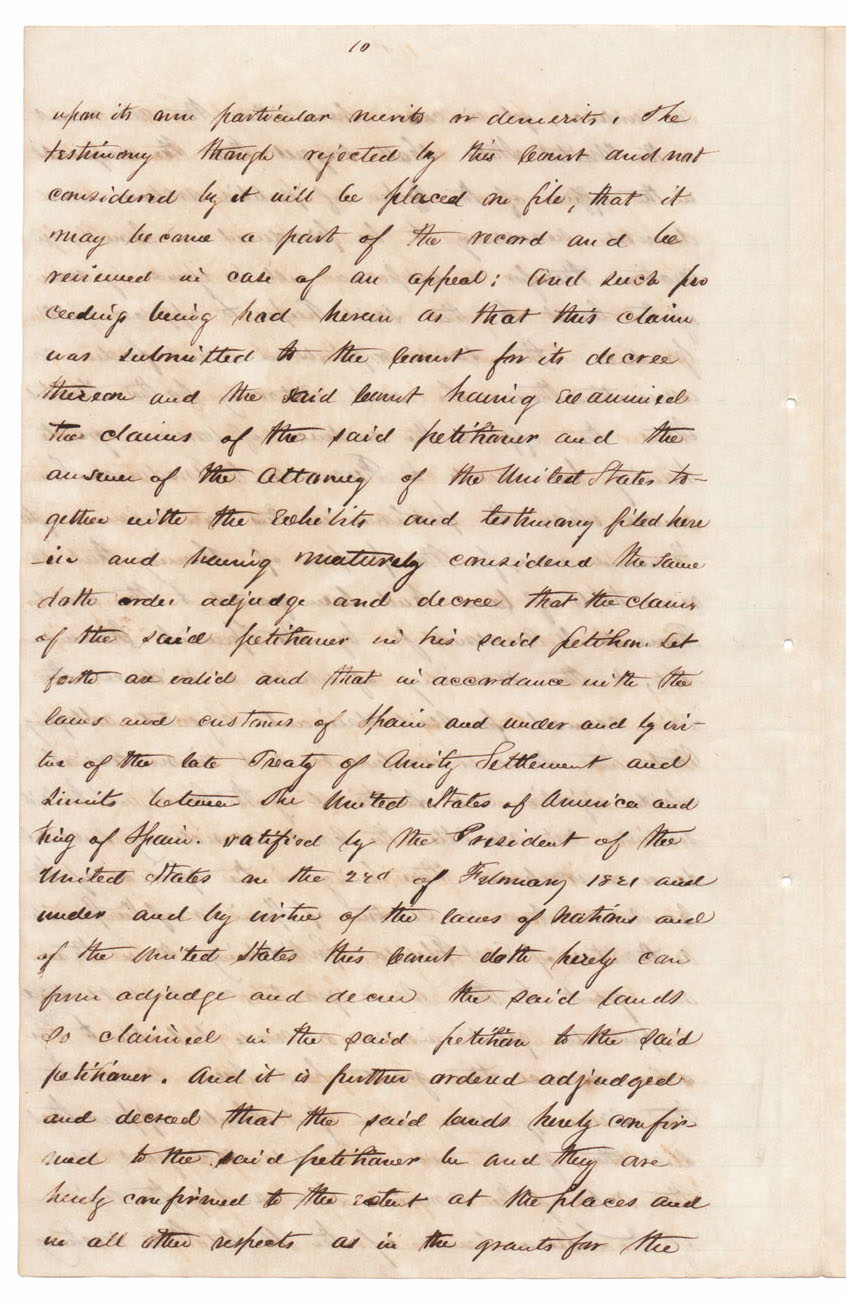 10
upon its own particular merits or demerits. The
testimony though rejected by this Court and not
considered by it will be placed on file, that it
may become a part of the record and be
reviewed in case of an appeal; And such pro
ceedings being had herein as that this claim
was submitted to the Court for its decree
thereon and the said Court having examined
the claims of the said petitioner and the
answer of the Attorney of the United States to-
gether with the Exhibits and testimony filed here
-in and having maturely considered the same
doth order adjudge and decree that the claims
of the said petitioner in his said petition set
forth are valid and that in accordance with the
laws and customs of Spain and under and by vir-
tue of the late Treaty of Amity Settlement and
Limits between the United States of America and
King of Spain. ratified by the President of the
United States on the 22d of February 1821 and
under and by virtue of the laws of Nations and
of the United States this Court doth hereby con
firm adjudge and decree the said lands
so claimed in the said petition to the said
petitioner. And it is further ordered adjudged
and decreed that the said lands hereby confir
med to the said petitioner be and they are
hereby confirmed to the extent at the places and
in all other respects as in the grants for the